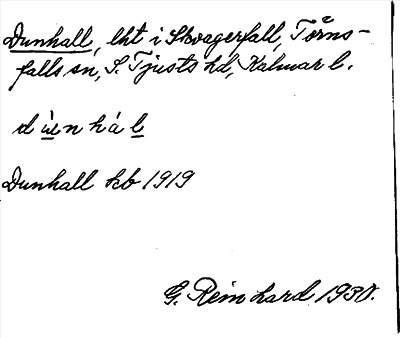 Dunhall, lht i Skvagerfall, Törns-
falls sn, S. Tjusts hd, Kalmar l.
d ùe n h á l
Dunhall kb 1919
G. Reinhard 1930.